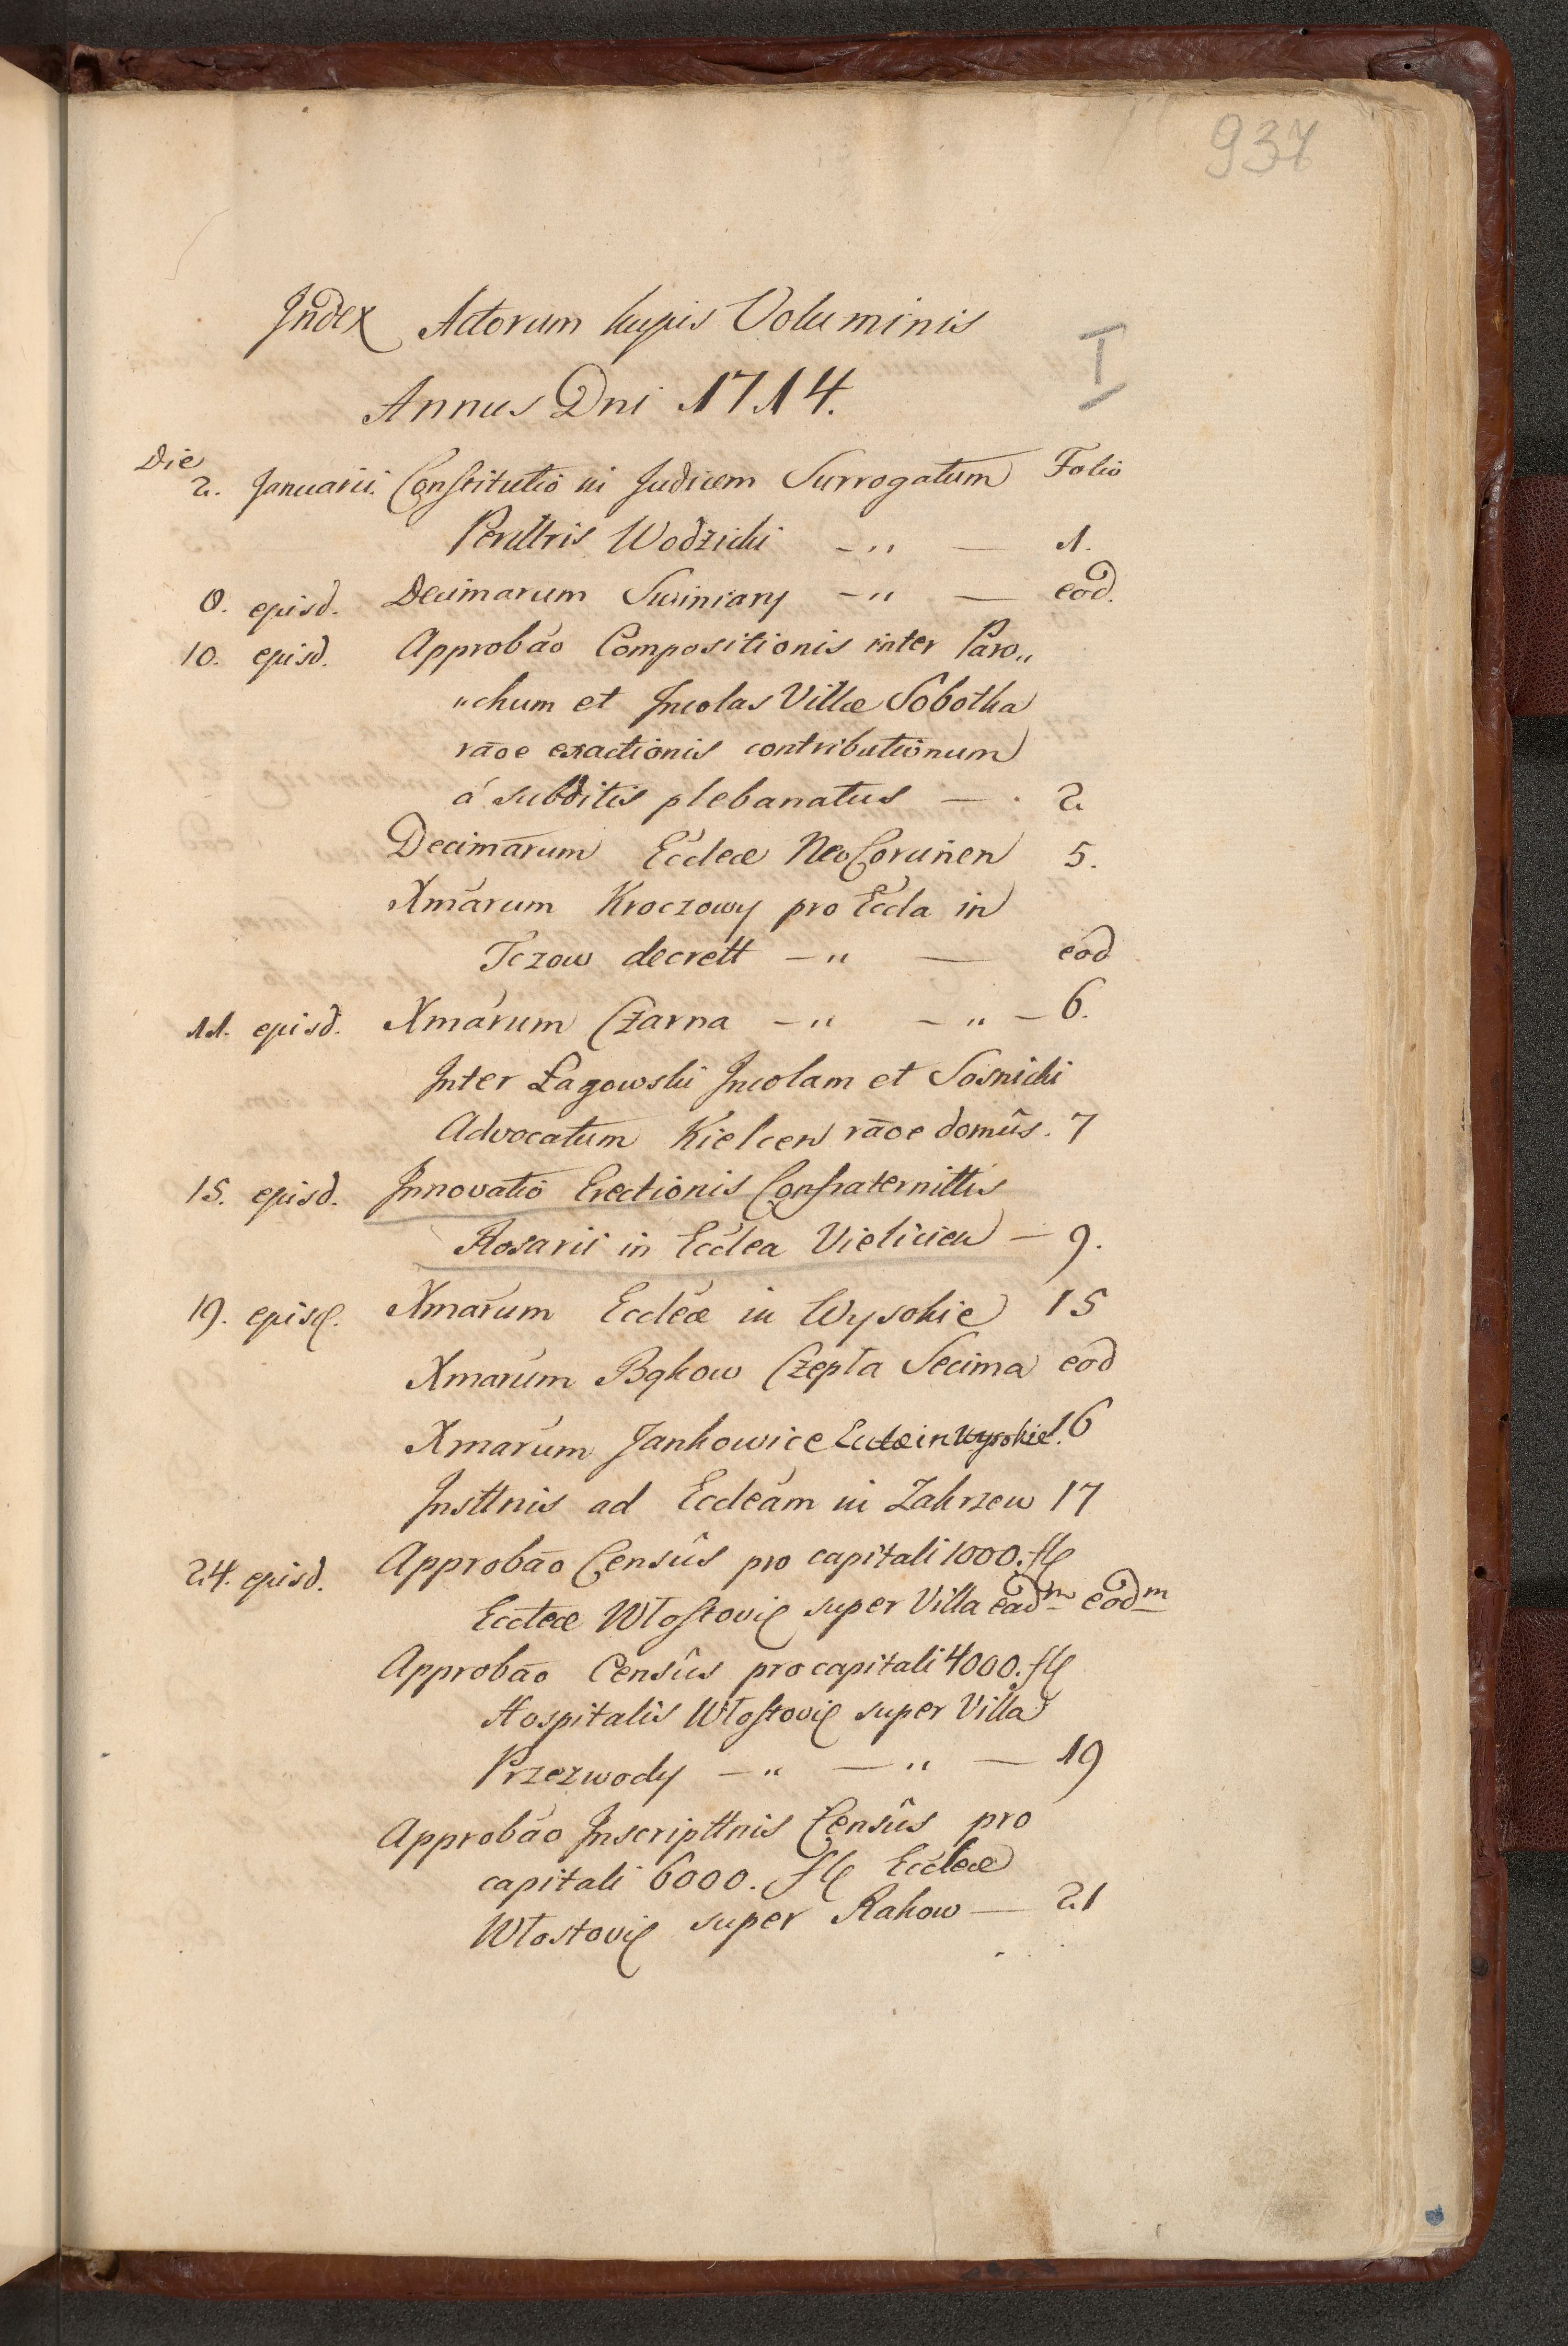 937
Index Actorum hujus Voluminis
I
Annus Dni 1714.
Die
2. Januarii. Constitutio in Judicem Surrogatum Folio
Perilltris Wodzicki —„ — 1.
8. ejusd. Decimarum Swiniary —„ — eod.
10. ejusd. Approbāo Compositionis inter Paro„
„chum et Incolas Villæ Sobotka
rāoe exactionis contributionum
á subditis plebanatus — . 2
Decimarum Ecclæ NeoCoruнen 5.
Xmārum Kroczowy pro Eccla in
Tczow decrett —„ — eod
11. ejusd. Xmárum Czarna —„ —„ — 6.
Inter Łagowski Incolam et Sosnicki
Advocatum Kielcen rāoe domûs. 7
15. ejusd. Innovatio Erectionis Confraternittis
Rosarii in Ecclea Vielicien — 9.
19. ejusd. Xmarum Eccleæ in Wysokie 15
Xmarum Bąkow Czepła Secima eod
Xmarum Jankowice Eccleæ in Wysokie. 16
Insttnis ad Eccleám in Zakrzew 17
24. ejusd. Approbāo Censûs pro capitali 1000. fl
Eccleæ Włostovi super Villa eadm eodm
Approbāo Censûs pro capitali 4000. fl
Hospitalis Włostovi super Villa
Przezwody —„ —„ — 19
Approbāo Inscripttnis Censûs pro
capitali 6000. fl Eccleæ
Włostovi super Rakow — 21